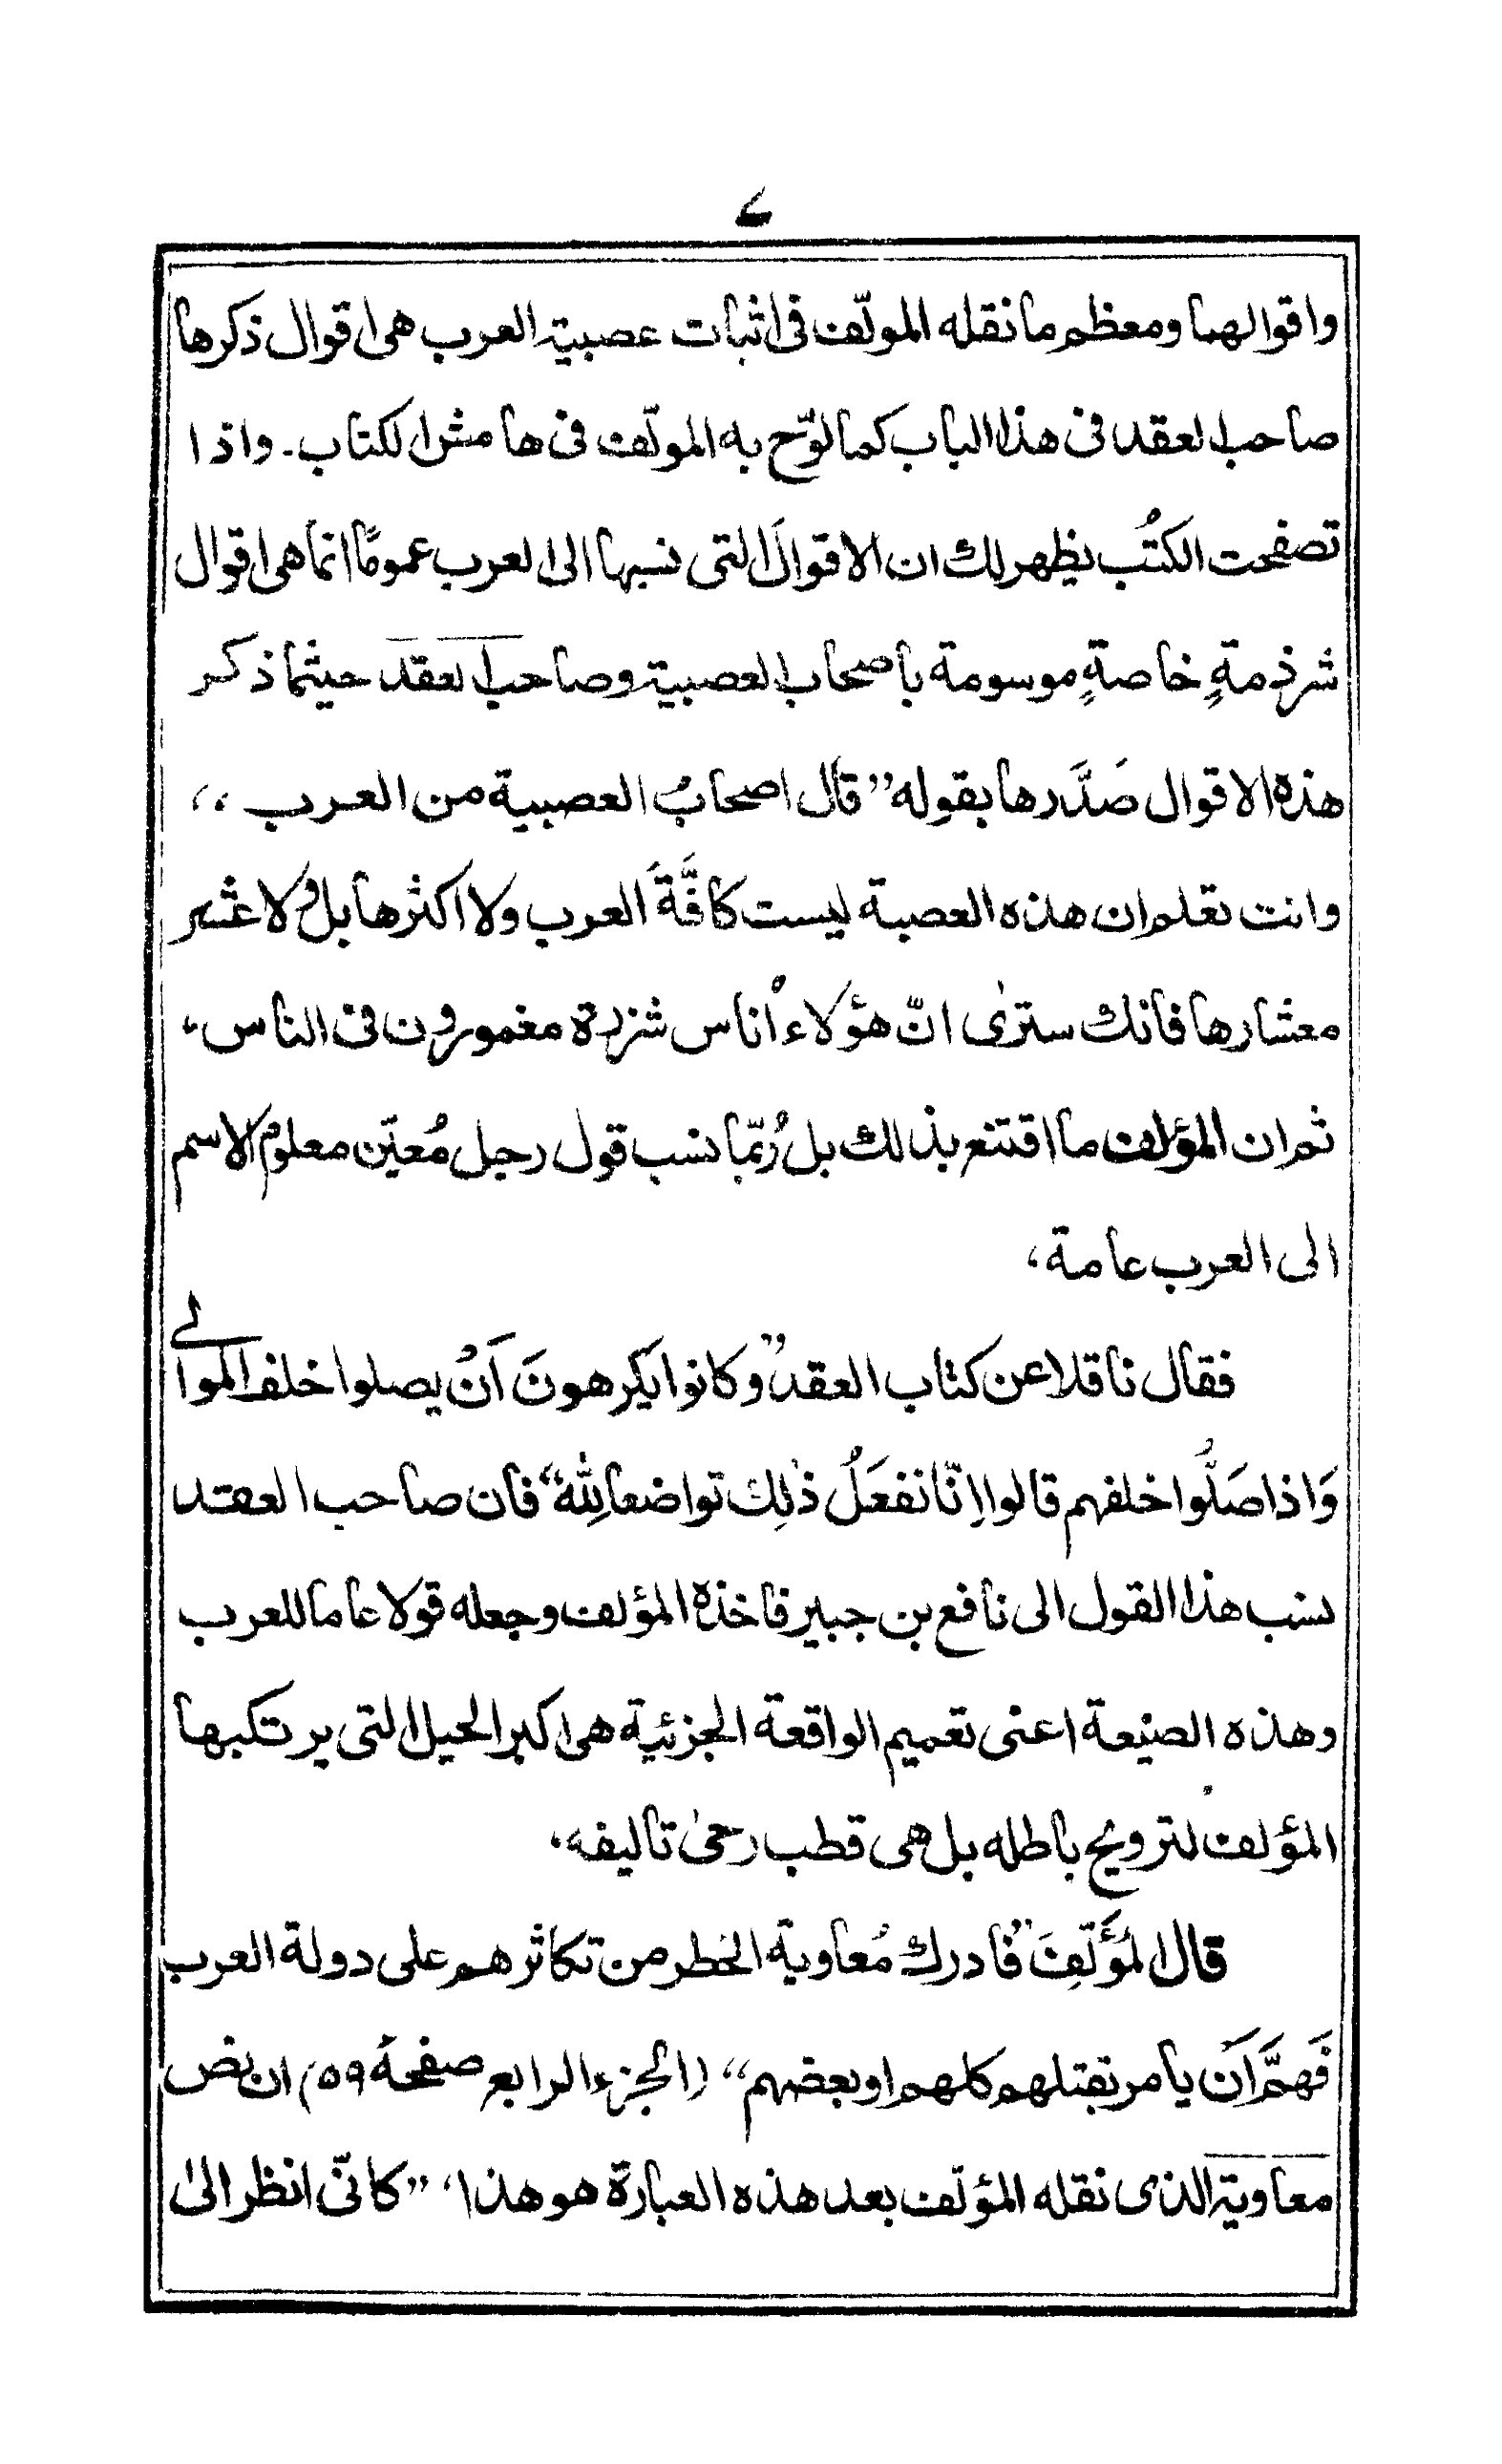 ۷
واقوالهما ومعظم ما نقله المولّف فی اثبات عصبیة العرب هی اقوال ذکرها
صاحب العقد فی هذا الباب کما لوّح به المولّف فی هامش الکتاب۔ واذا
تصفحت الکتُب یظهر لك ان الاقوالَ التی نسبها الی العرب عمومًا انما هی اقوال
شرذمةٍ خاصةٍ موسومة باصحاب العصبیة وصاحب العقد حیثما ذکر
هذه الاقوال صَدَّرها بقوله ”قال اصحابُ العصبیة من العرب،،
وانت تعلم ان هذه العصبة لیست کافَّةَ العرب ولا اکثرها بل ولا عُشر
معشارها فانك سترٰی انّ هؤلاء اُناس شزرة مغمورون فی الناس،
ثم ان المؤلف ما اقتنع بذلك بل رُبّما نسب قول رجل مُعیّن معلوم الاسم
الی العرب عامة،
فقال ناقلا عن کتاب العقد ”وکانوا یکرهونَ اَنْ یصلوا خلف الموالی
وَاذا صَلُّوا خلفهم قالوا اِنّا نفعَلُ ذٰلِك تواضعا لِلّٰه“ فان صاحب العقد
نسب هذا القول الی نافع بن جبیر فاخذه المؤلف وجعله قولا عاما للعرب
وهذه الصنیعة اعنی تعمیم الواقعة الجزئیة هی اکبر الحیل التی یرتکبها
المؤلف لترویج باطله بل هی قطب رحیٰ تالیفه،
قال المُؤَلّفِ ”فادرك مُعاویة الخطر من تکاثرهم علی دولة العرب
فَهمَّ اَن یامر بقتلهم کلهم او بعضهم“ (الجزء الرابع صفحة ۵۹) ان نص
معاویة الذی نقله المؤلّف بعد هذه العبارة هو هذا، ”کانّی انظر الیٰ